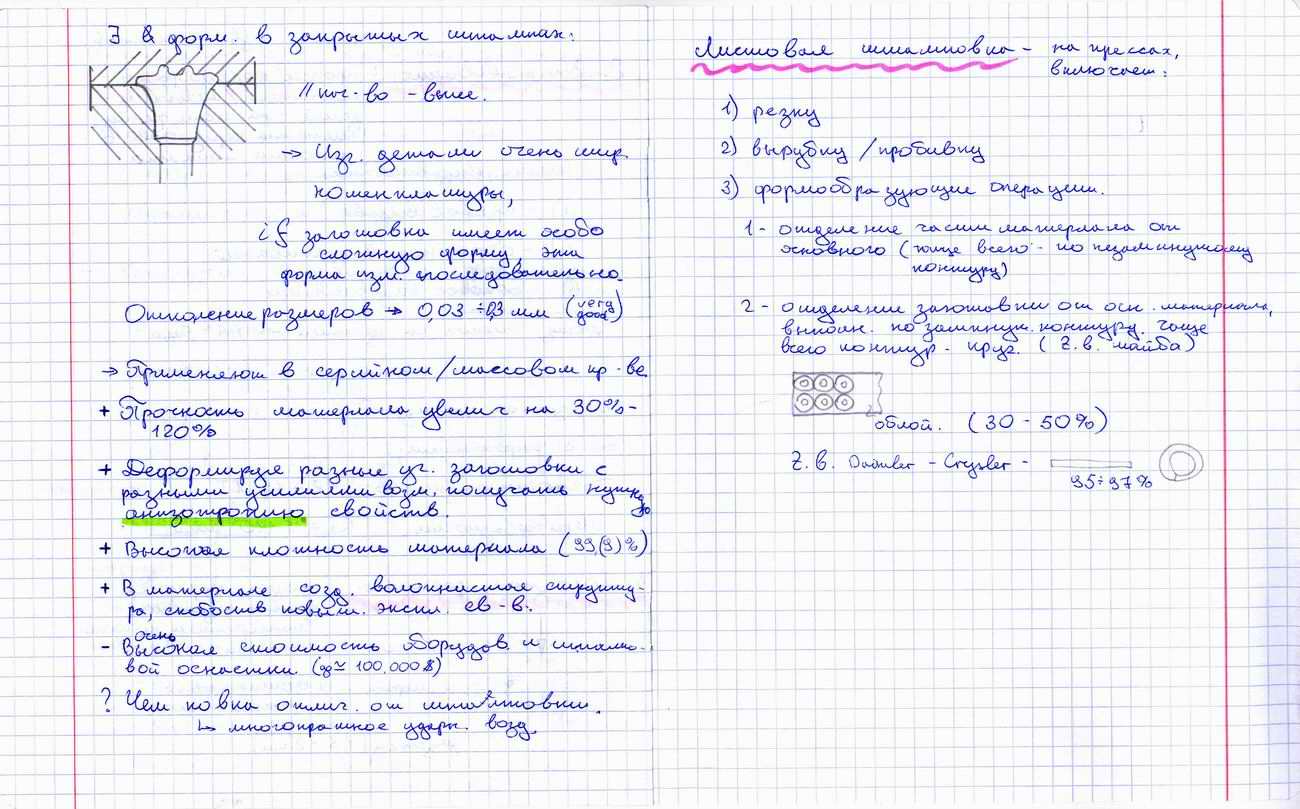 ∃ & форм. в закрытых штампах:
// кач-во - выше.
→ Изг. детали очень шир.
номенклатуры,
if заготовка имеет особо
сложную форму, эта
форма изм. последовательно.
Отклонение размеров → 0,03 ÷ 0,3 мм (very good)
→ Применяют в серийном/массовом пр-ве.
+ Прочность материала увелич на 30%-
120%
+ Деформируя разные уч. заготовки с
разными усилиями возм. получать нужную
анизотропию свойств.
+ Высокая плотность материала (99,(9)%)
+ В материале созд. волокнистая структу-
ра, способств повыш. экспл. св-в.
- Высокая очень стоимость оборудов. и штампо-
вой оснастки. (до ≈ 100.000 $)
? Чем ковка отлич. от штамповки.
↳ многократное ударн. возд.
Листовая штамповка - на прессах,
включает:
1) резку
2) вырубку / пробивку
3) формообразующие операции.
1 - отделение части материала от
основного (чаще всего - по незамкнутому
контуру)
2 - отделение заготовки от осн. материала,
выполн. по замкнут. контуру. Чаще
всего контур - круг. (z.B. шайба)
облой. (30 - 50%)
z.B. Daimler - Crysler -
95÷97%